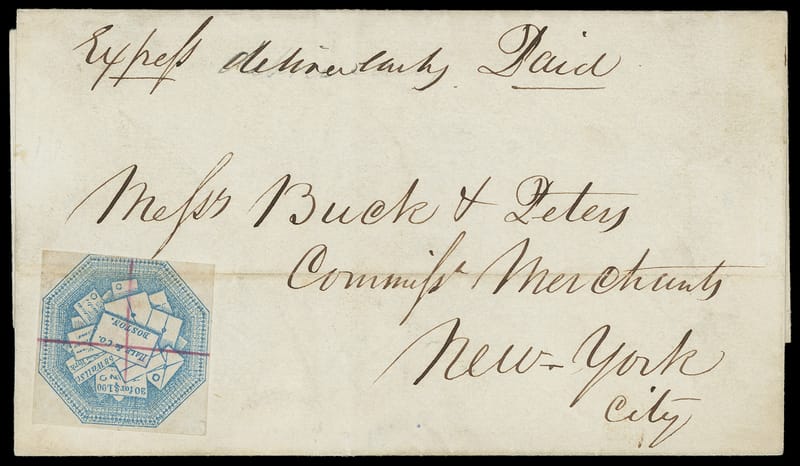 Expreſs deliver early Paid
Meſsrs Buck & Peters
Commiſsn Merchants
New-York
City
HALE & Co.
BOSTON.
20 for $1.00